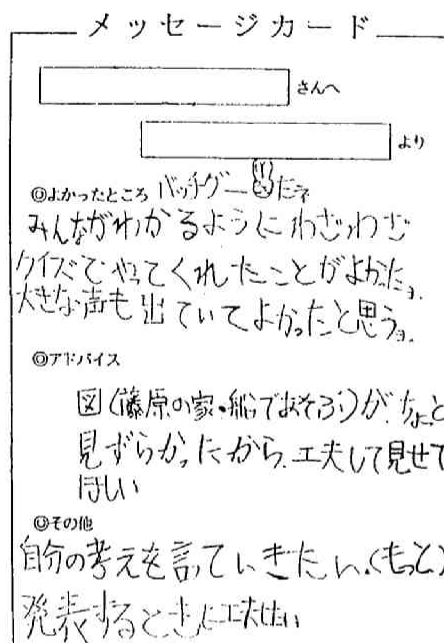 メッセージカード
さんへ
より
◎よかったところ バッチグーだネ
みんながわかるようにわざわざ
クイズでやってくれたことがよかったヨ。
大きな声も出ていてよかったと思うヨ。
◎アドバイス
図(藤原の家・船であそぶ)が、ちょっと
見ずらかったから、工夫して見せて
ほしい
◎その他
自分の考えを言っていきたい。(もっと)
発表するときに工夫したい